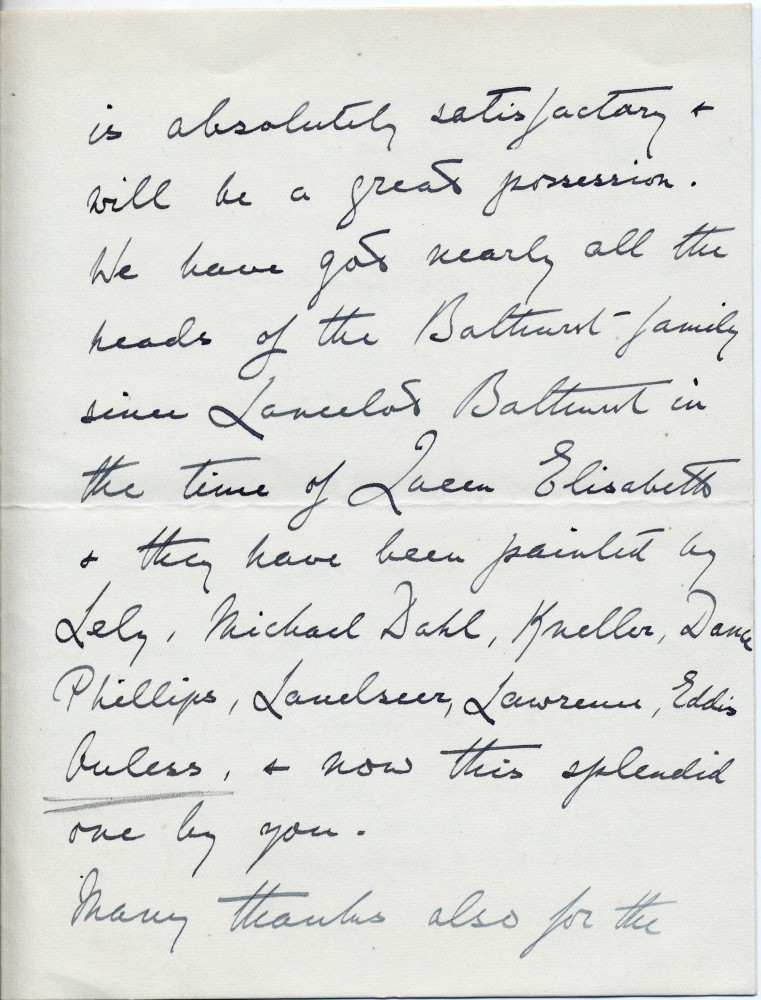 is absolutely satisfactory &
will be a great possession.
We have got nearly all the
heads of the Bathurst family
since Lancelot Bathurst in
the time of Queen Elisabeth
& they have been painted by
Lely, Michael Dahl, Kneller, Dance
Phillips, Landseer, Lawrence, Eddis
Ouless, & now this splendid
one by you.
Many thanks also for the